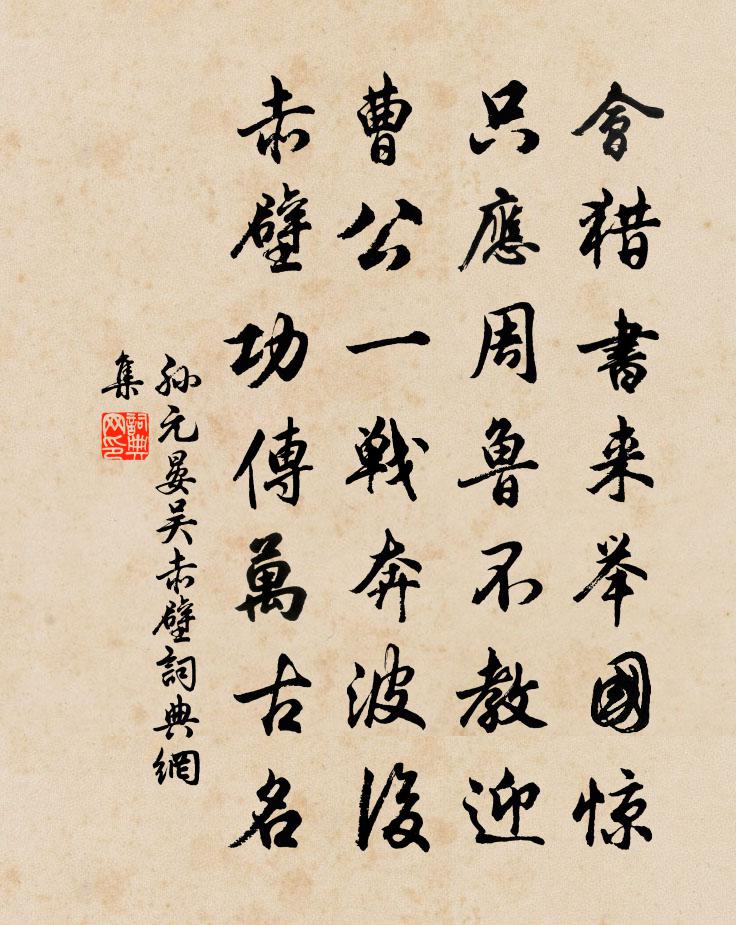 會猎書来举國惊
只應周魯不教迎
曹公一戰奔波後
赤壁功傳萬古名
孙元晏吴赤壁詞典網
集
詞典網印